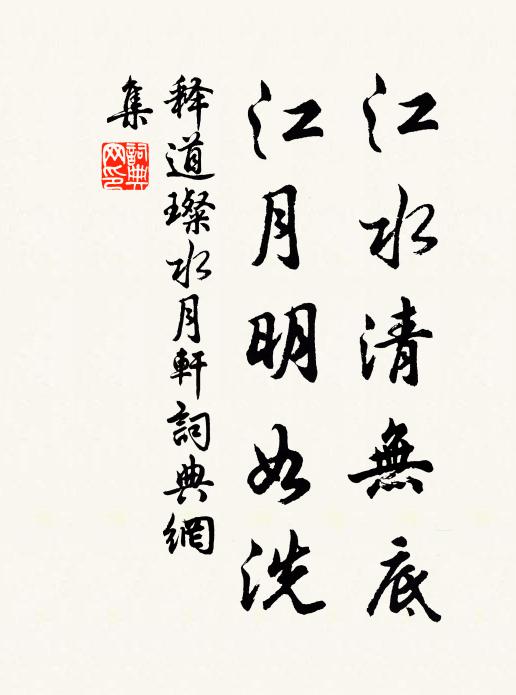 江水清無底
江月明如洗
释道璨水月軒詞典網
集
詞典
网印